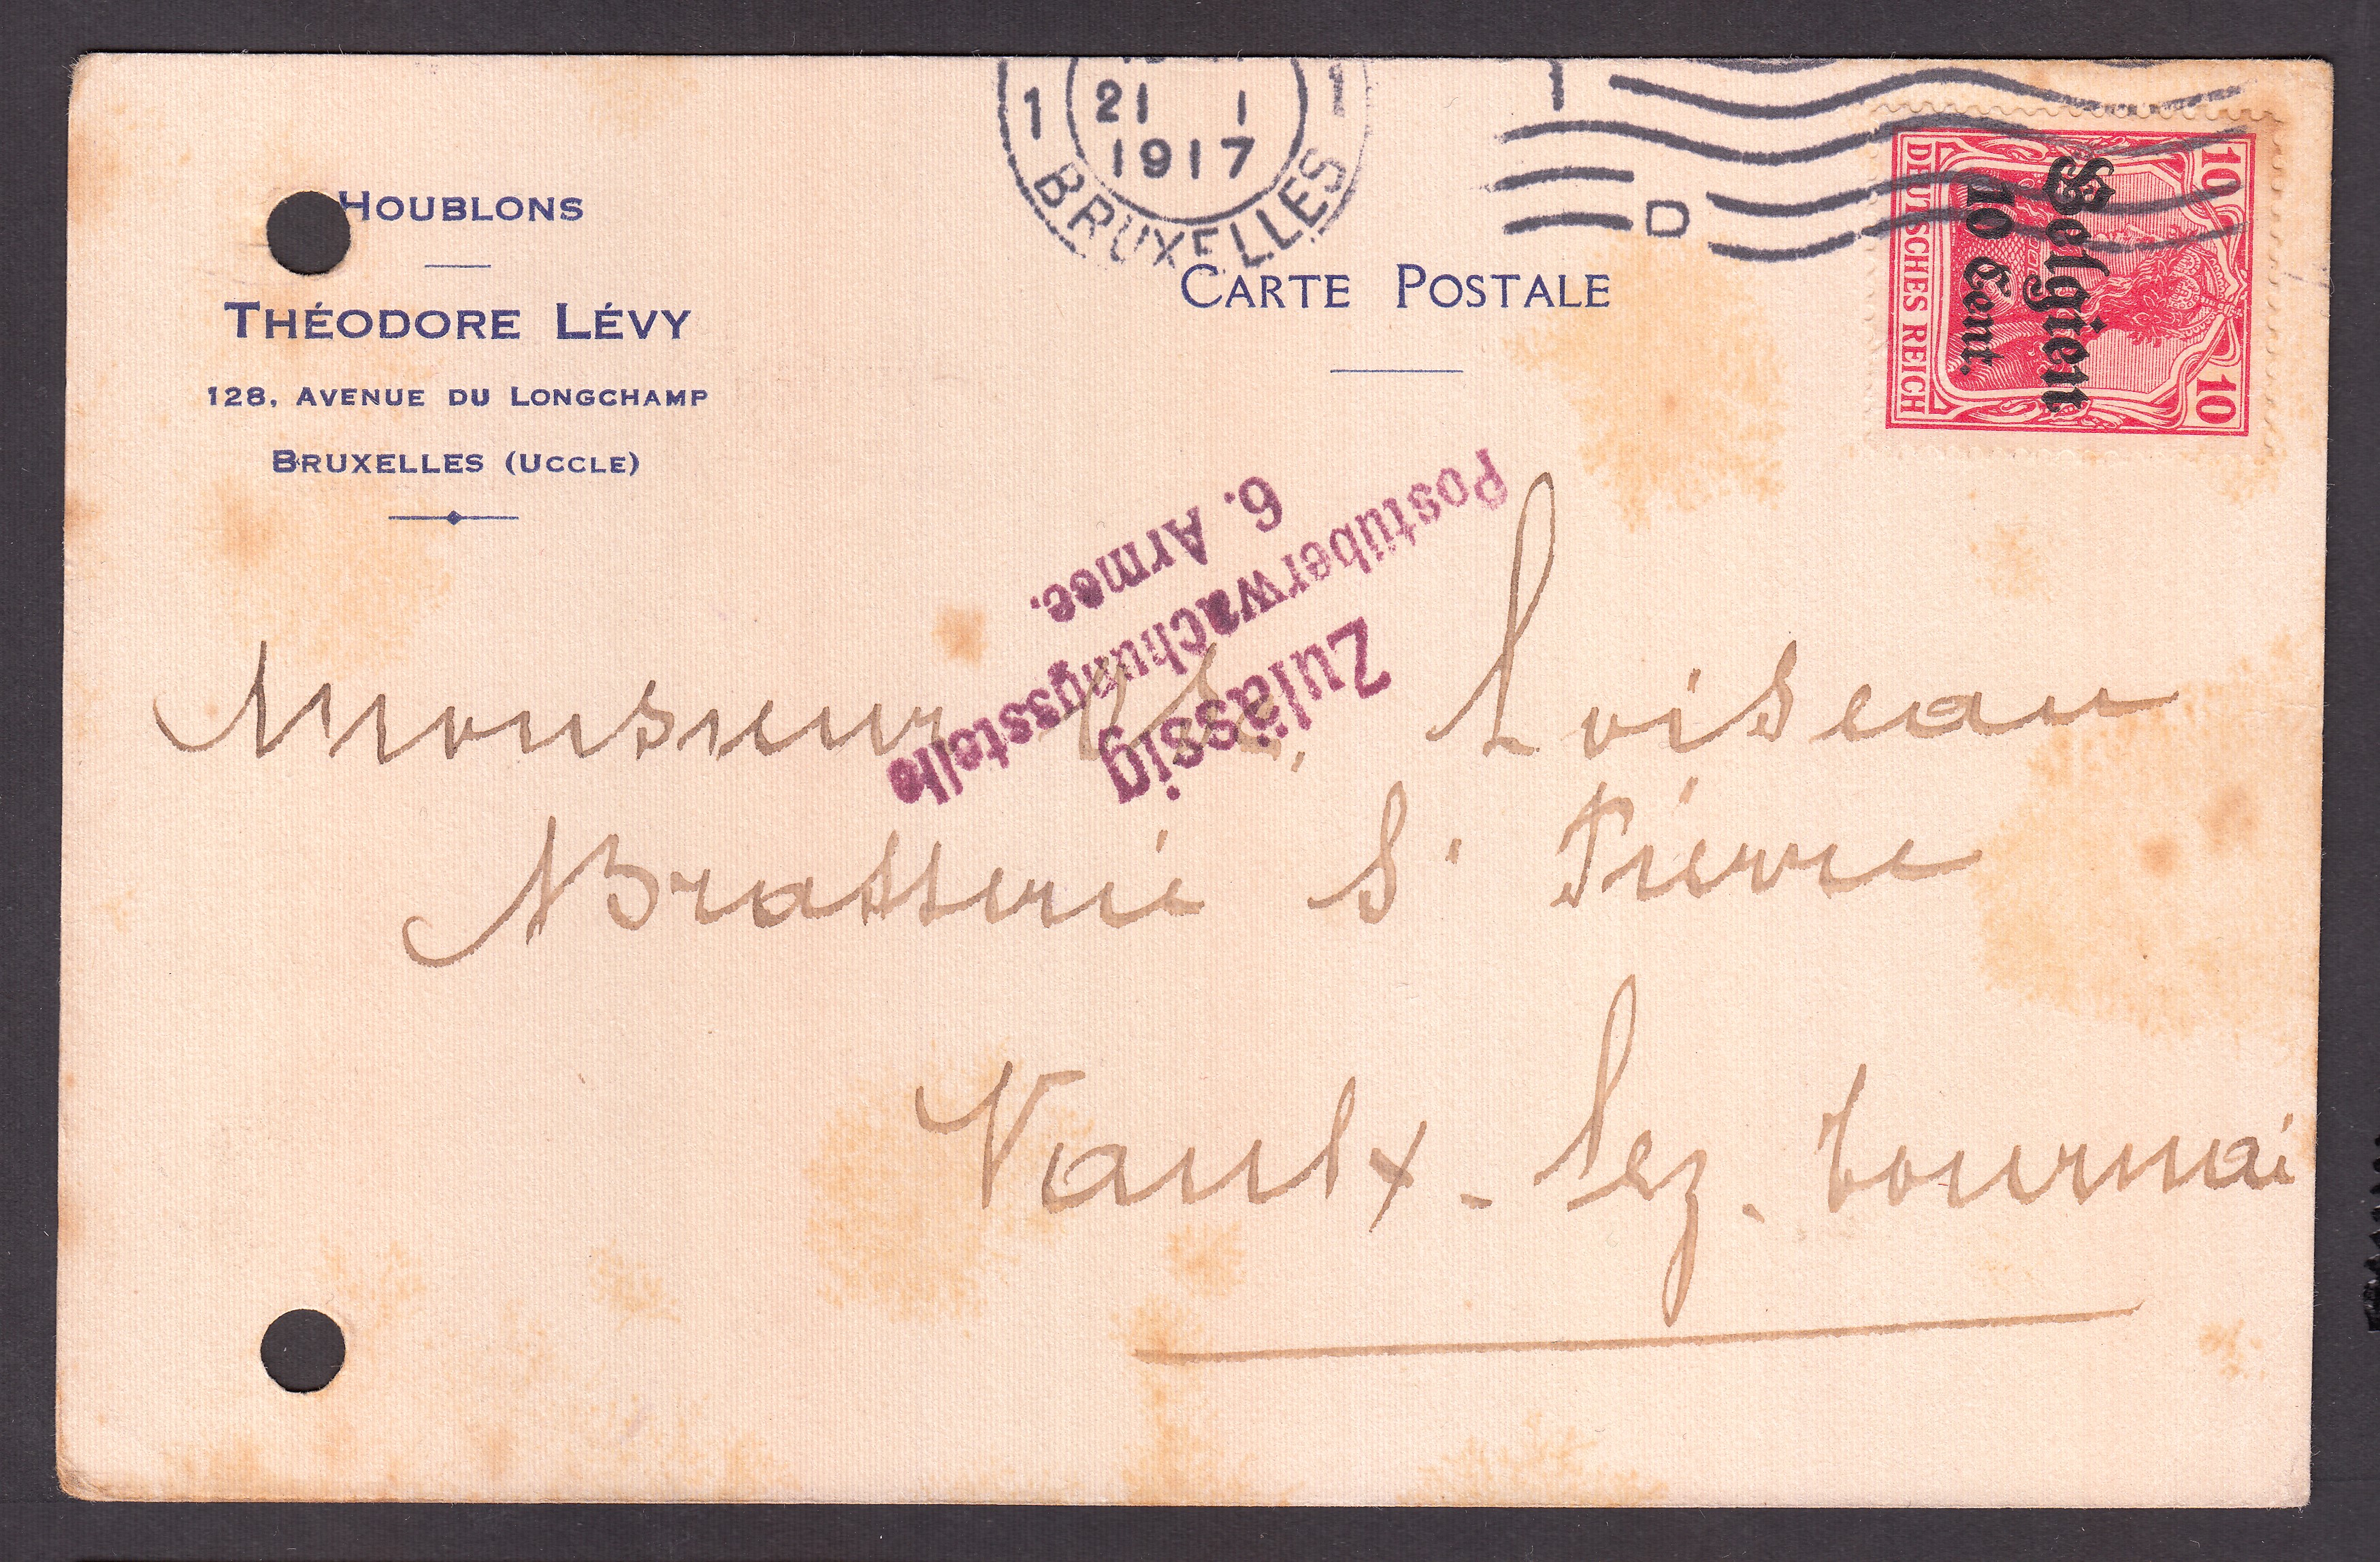 HOUBLONS
THÉODORE LÉVY
128, AVENUE DU LONGCHAMP
BRUXELLES (UCCLE)
1 21 1 1
1917
BRUXELLES
D
CARTE POSTALE
10 10
DEUTSCHES REICH
Belgien
10 Cent.
Zulässig
Postüberwachungsstelle
6. Armee.
Monsieur Loiseau
Brasserie St Pierre
Vaulx-lez-Tournai